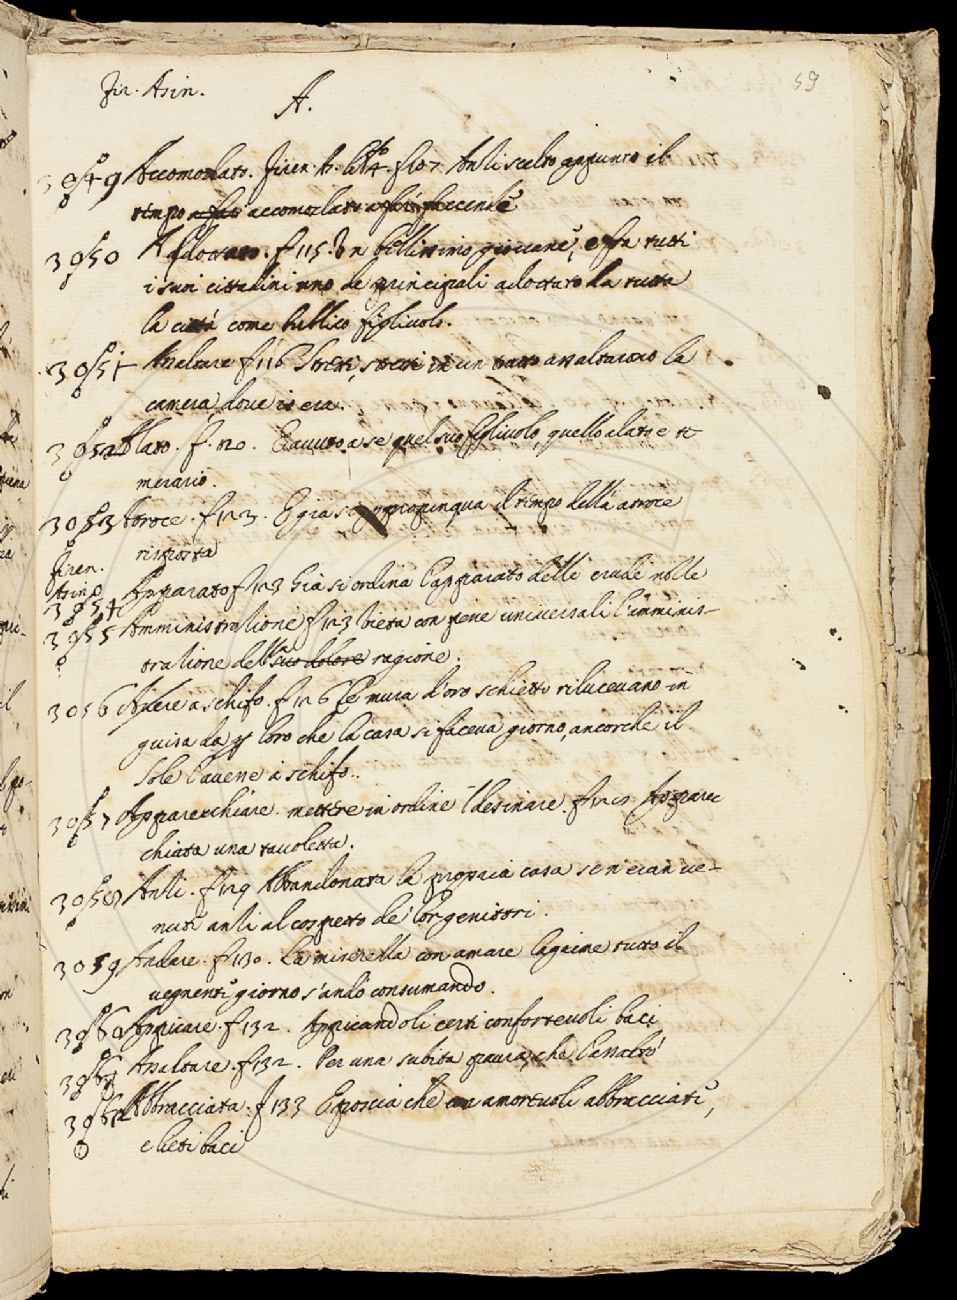 59
Fir. Asin.
A.
3049 Accomodato. Firen. A. f. 107 Anzi scelto appunto il
tempo accomodato faccende
3050 Adottato. f 115. Un bellissimo giovane, e fra tutti
i suoi cittadini uno de principali adottato da tutta
la città come publico figliuolo.
3051 Assaltare f 116 Stretti, stretti in un tratto assaltarono la
camera dove io era.
3052 Alato. f. 120. E avuto a se quel suo figliuolo, quello alato e te
merario.
3053 Atroce. f 123. E già s'appropinqua il tempo della atroce
risposta
Firen.
Asino
3054 Apparato f 123 Già si ordina l'apparato delle crude nolle
3055 Amministratione f 123 vieta con pene universali l'amminis-
tratione della suo dolore ragione.
3056 Avere a schifo. f 126 Le mura d'oro schietto rilucevano in
guisa da p loro che la casa si faceva giorno, ancorchè il
Sole l'avene a schifo.
3057 Apparecchiare. mettere in ordine il desinare. f 127 Apparec
chiata una tavoletta.
3058 Anzi. f 129 Abbandonata la propria casa se n'eran ve-
nuti anzi al cospetto de' lor genitori.
3059 Andare. f 130. La miserella con amare lagrime tutto il
vegnente giorno s'andò consumando.
3060 Appiccare. f 132. Appicandoli certi confortevoli baci
3061 Assaltare. f 132. Per una subita paura, che l'assaltò
3062 Abbracciata. f 133 E poscia che con amorevoli abbracciati,
e lieti baci